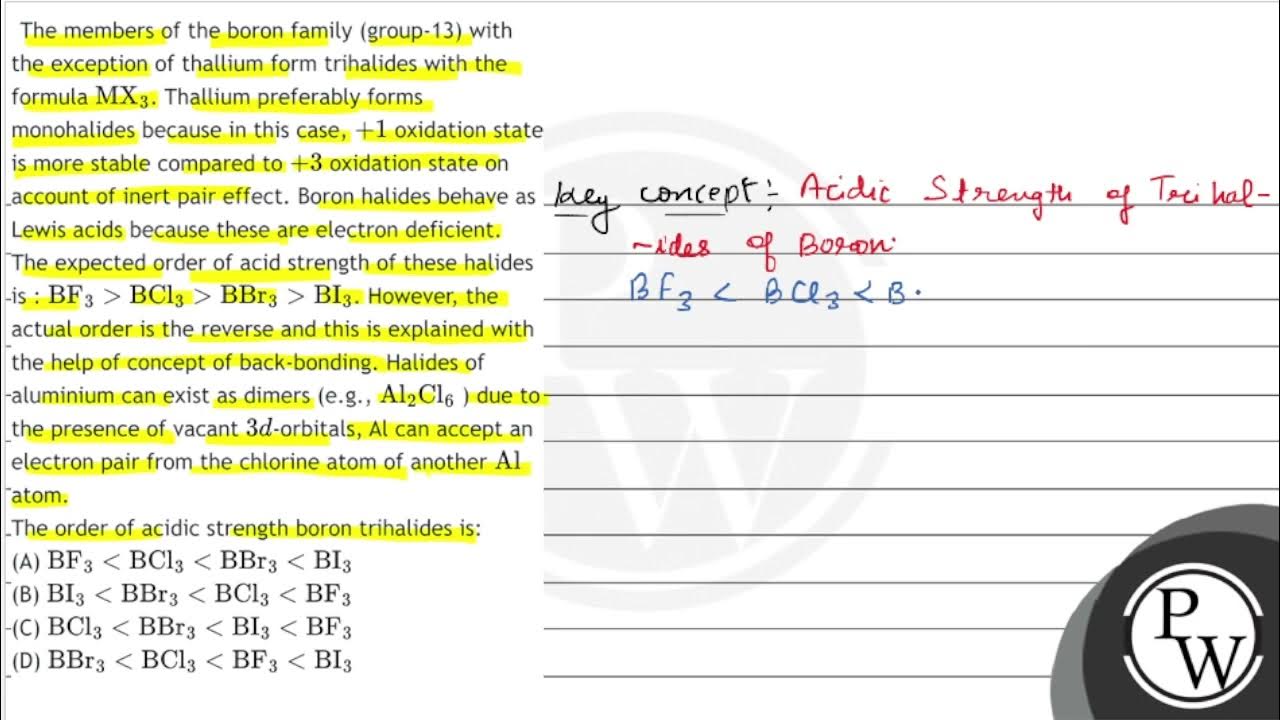 The members of the boron family (group-13) with
the exception of thallium form trihalides with the
formula MX₃. Thallium preferably forms
monohalides because in this case, +1 oxidation state
is more stable compared to +3 oxidation state on
account of inert pair effect. Boron halides behave as
Lewis acids because these are electron deficient.
The expected order of acid strength of these halides
is : BF₃ > BCl₃ > BBr₃ > BI₃. However, the
actual order is the reverse and this is explained with
the help of concept of back-bonding. Halides of
aluminium can exist as dimers (e.g., Al₂Cl₆ ) due to
the presence of vacant 3d-orbitals, Al can accept an
electron pair from the chlorine atom of another Al
atom.
The order of acidic strength boron trihalides is:
(A) BF₃ < BCl₃ < BBr₃ < BI₃
(B) BI₃ < BBr₃ < BCl₃ < BF₃
(C) BCl₃ < BBr₃ < BI₃ < BF₃
(D) BBr₃ < BCl₃ < BF₃ < BI₃
Key concept:- Acidic Strength of Trihal-
-ides of Boron.
BF₃ < BCl₃ < B.
PW
PW